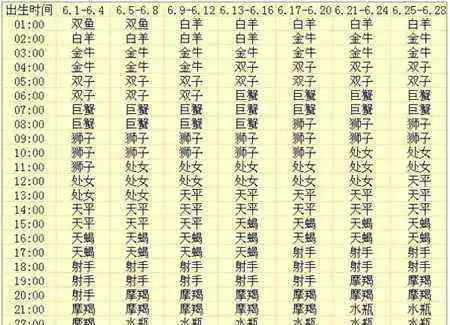 出生时间 6.1-6.4 6.5-6.8 6.9-6.12 6.13-6.16 6.17-6.20 6.21-6.24 6.25-6.28
01:00 双鱼 双鱼 白羊 白羊 白羊 白羊 白羊
02:00 白羊 白羊 白羊 白羊 金牛 金牛 金牛
03:00 金牛 金牛 金牛 金牛 金牛 金牛 金牛
04:00 金牛 金牛 金牛 双子 双子 双子 双子
05:00 双子 双子 双子 双子 双子 双子 双子
06:00 双子 双子 双子 巨蟹 巨蟹 巨蟹 巨蟹
07:00 巨蟹 巨蟹 巨蟹 巨蟹 巨蟹 巨蟹 巨蟹
08:00 巨蟹 巨蟹 巨蟹 巨蟹 狮子 狮子 狮子
09:00 狮子 狮子 狮子 狮子 狮子 狮子 狮子
10:00 狮子 狮子 狮子 狮子 狮子 处女 处女
11:00 狮子 处女 处女 处女 处女 处女 处女
12:00 处女 处女 处女 处女 处女 处女 天平
13:00 处女 处女 天平 天平 天平 天平 天平
14:00 天平 天平 天平 天平 天平 天平 天平
15:00 天平 天平 天平 天蝎 天蝎 天蝎 天蝎
16:00 天蝎 天蝎 天蝎 天蝎 天蝎 天蝎 天蝎
17:00 天蝎 天蝎 天蝎 天蝎 射手 射手 射手
18:00 射手 射手 射手 射手 射手 射手 射手
19:00 射手 射手 射手 射手 射手 摩羯 摩羯
20:00 射手 摩羯 摩羯 摩羯 摩羯 摩羯 摩羯
21:00 摩羯 摩羯 摩羯 摩羯 摩羯 水瓶 水瓶
22:00 摩羯 水瓶 水瓶 水瓶 水瓶 水瓶 水瓶